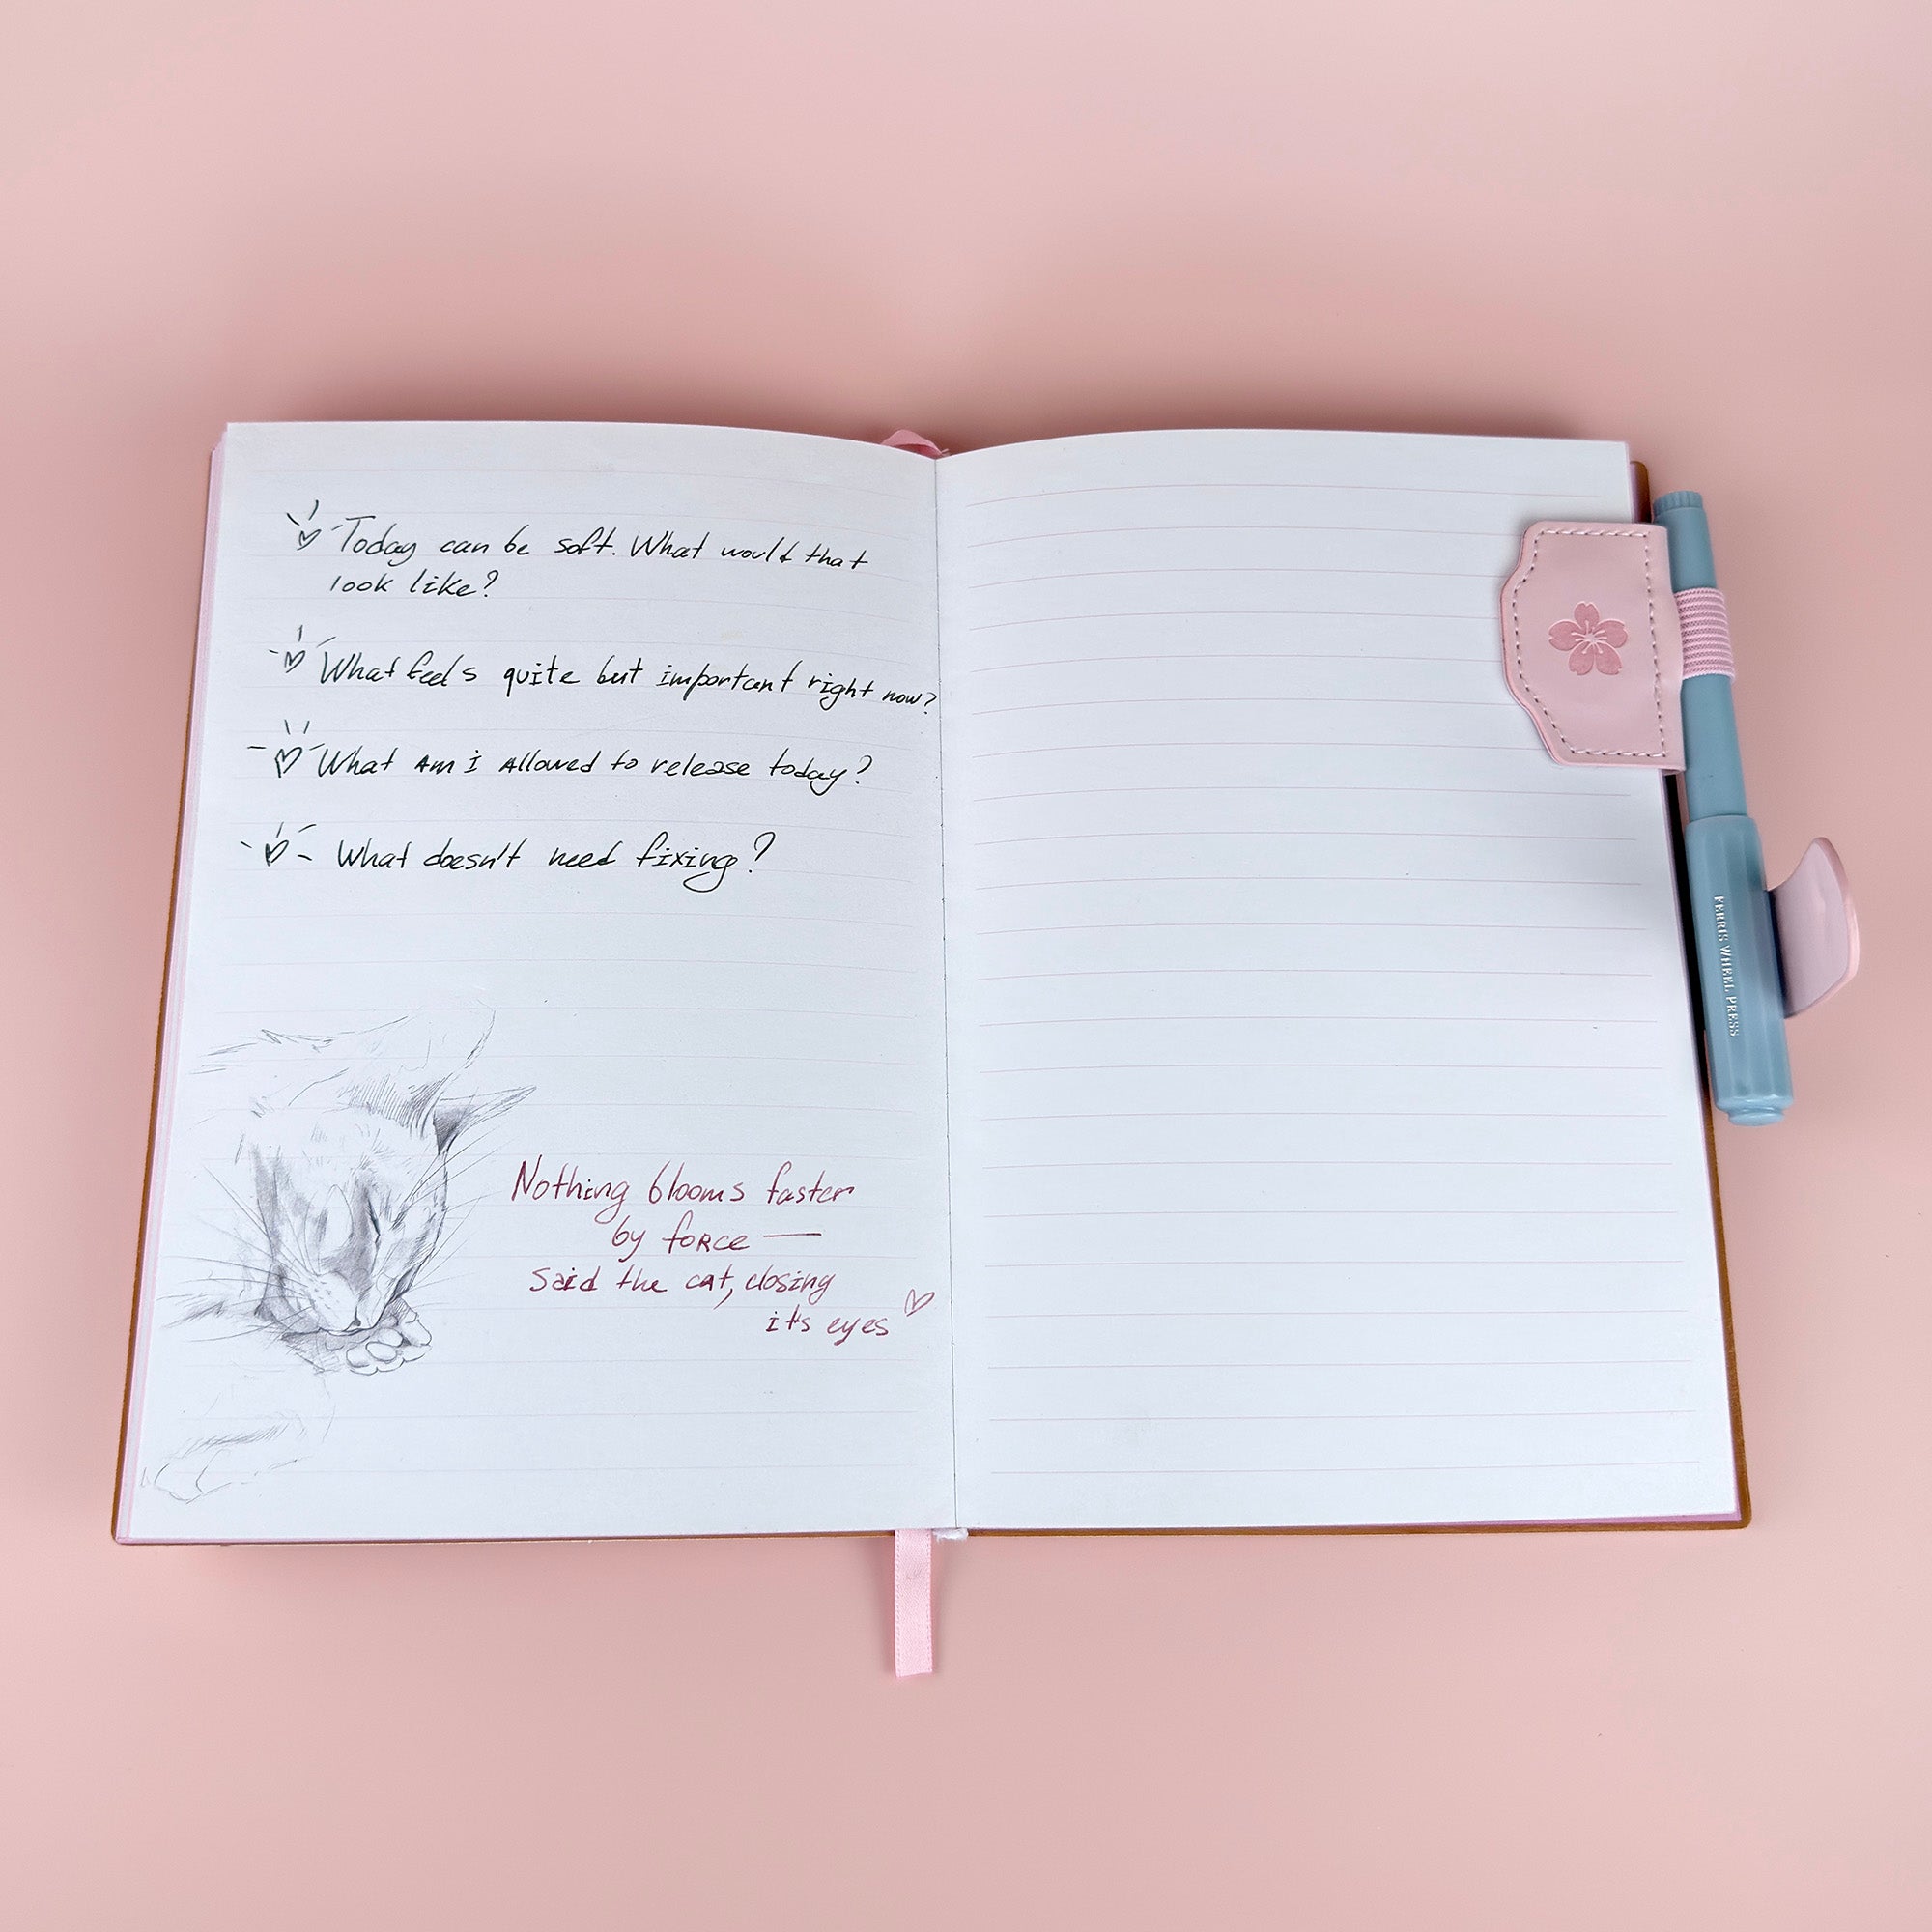 Today can be soft. What would that
look like?
What feels quite but important right now?
What Am I Allowed to release today?
What doesn't need fixing?
Nothing blooms faster
by foRce —
Said the cat, closing
its eyes
FERRIS WHEEL PRESS